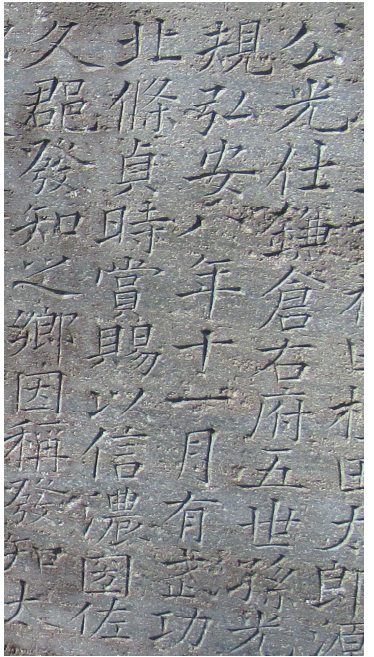 田太郎源
公光仕鎌倉右府五世孫光
規弘安八年十一月有武功
北條貞時賞賜以信濃國佐
久郡發知之鄉因稱發知太